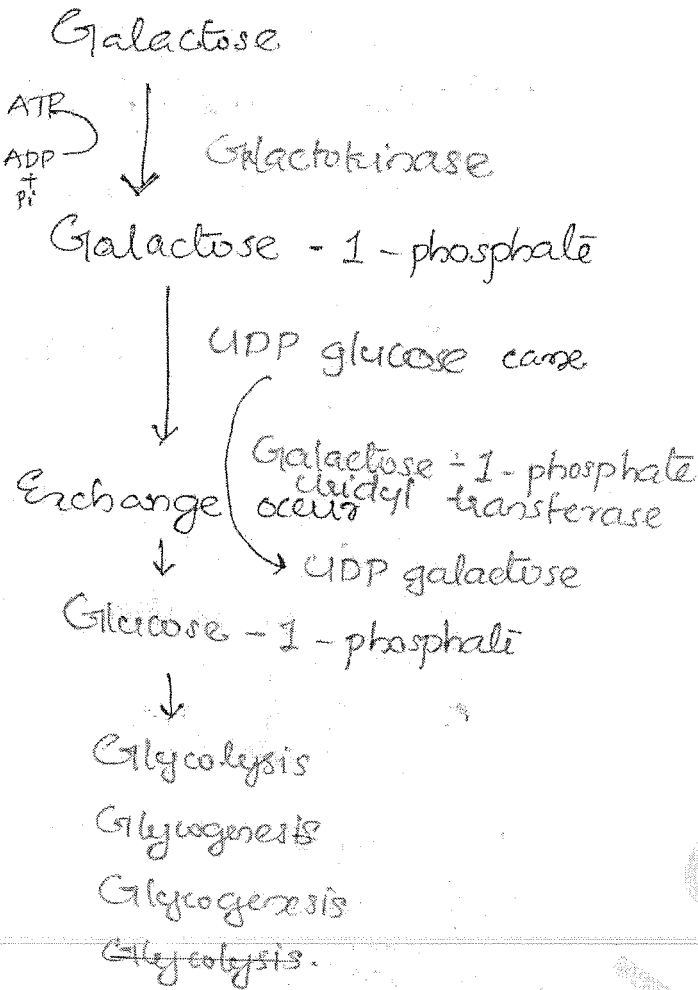 Galactose
ATP
ADP
+
Pi
Galactokinase
Galactose - 1 - phosphate
UDP glucose came
Galactose - 1 - phosphate
uridyl transferase
Exchange occur
UDP galactose
Glucose - 1 - phosphate
Glycolysis
Glycogenesis
Glycogenesis
Glycolysis.